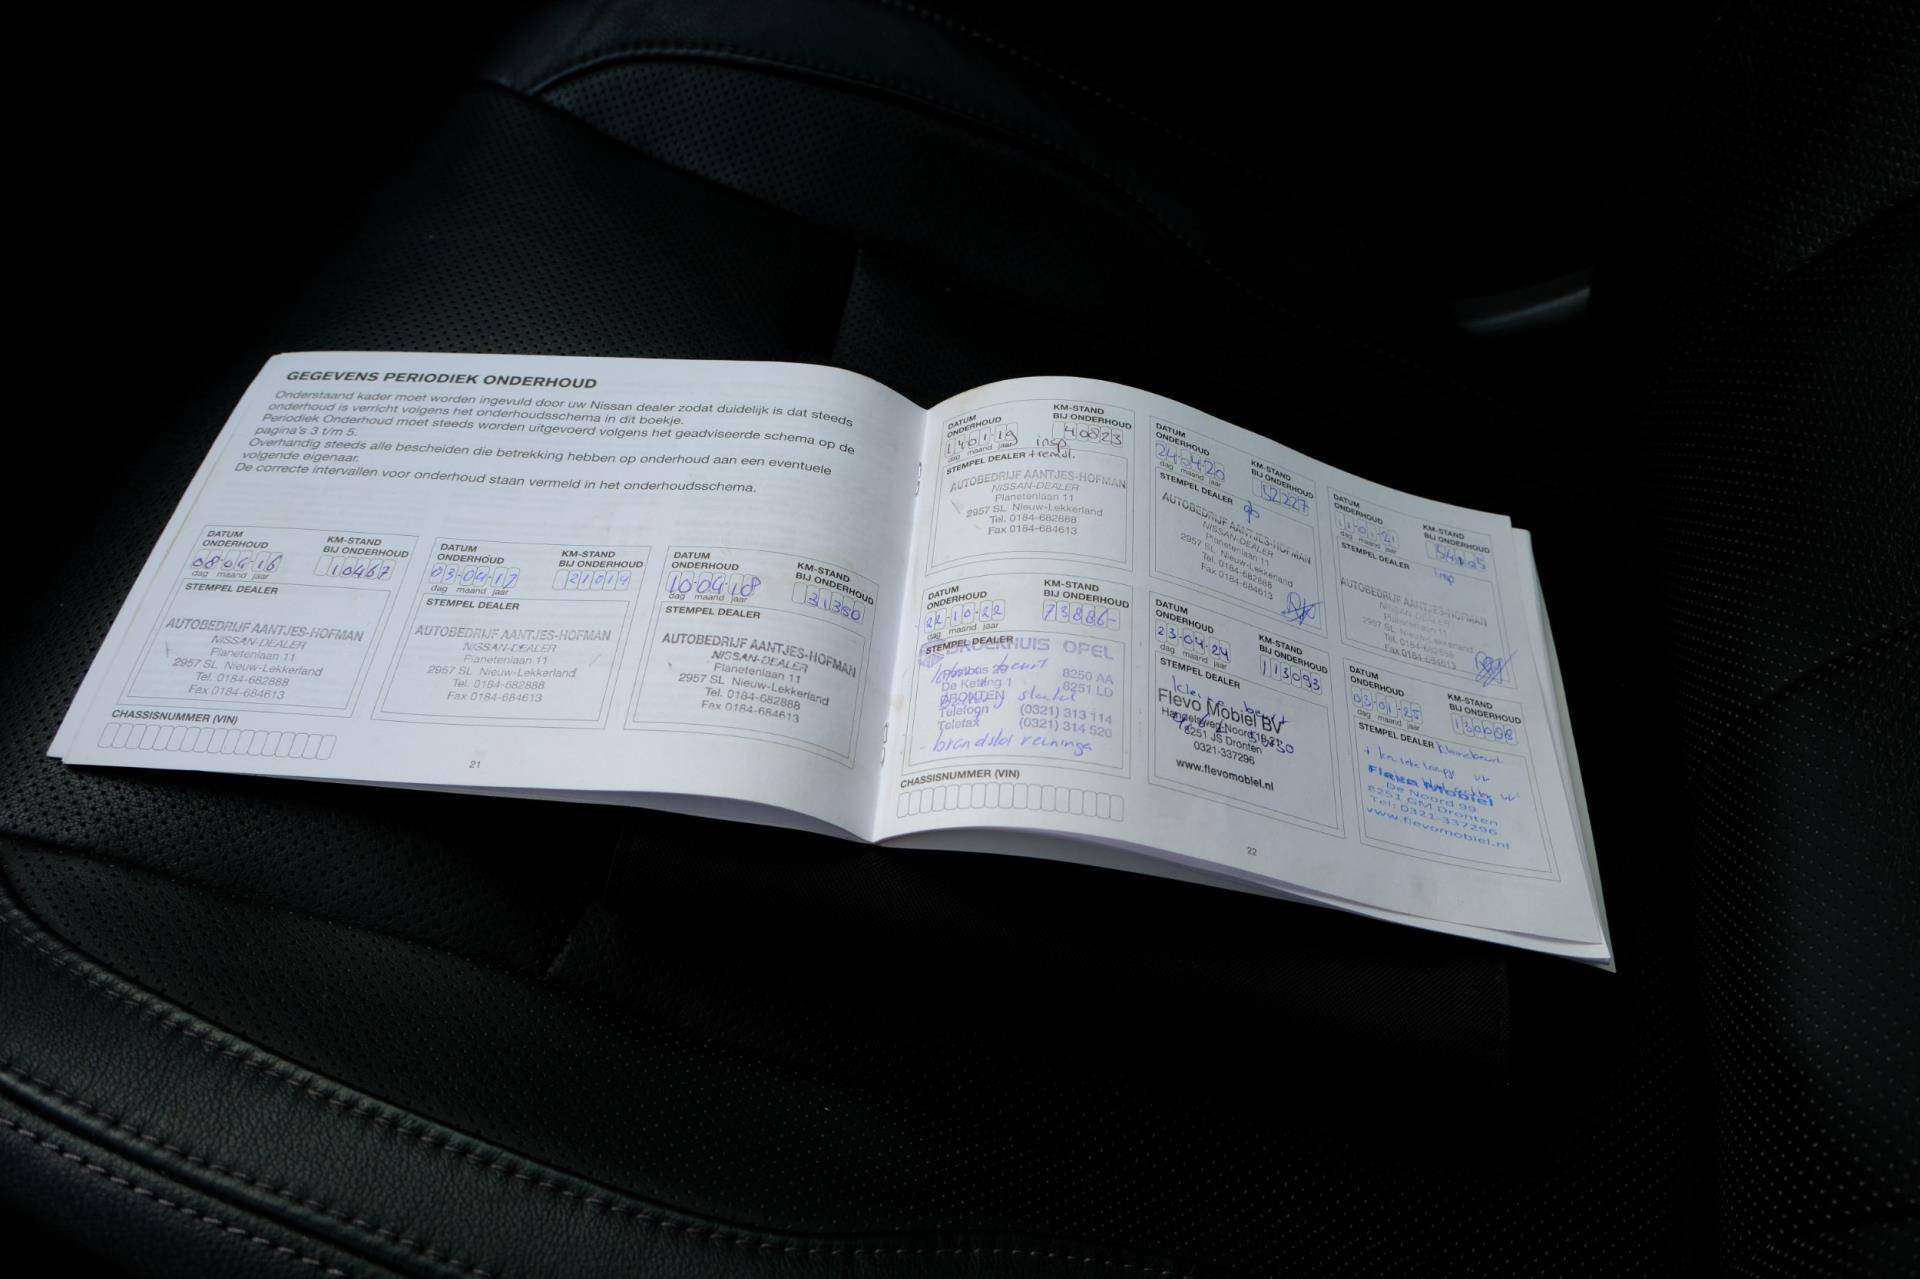 GEGEVENS PERIODIEK ONDERHOUD
Onderstaand kader moet worden ingevuld door uw Nissan dealer zodat duidelijk is dat steeds
onderhoud is verricht volgens het onderhoudsschema in dit boekje.
Periodiek Onderhoud moet steeds worden uitgevoerd volgens het geadviseerde schema op de
pagina's 3 t/m 5.
Overhandig steeds alle bescheiden die betrekking hebben op onderhoud aan een eventuele
volgende eigenaar.
De correcte intervallen voor onderhoud staan vermeld in het onderhoudsschema.
DATUM
ONDERHOUD
08 04 16
dag maand jaar
KM-STAND
BIJ ONDERHOUD
10467
STEMPEL DEALER
AUTOBEDRIJF AANTJES-HOFMAN
NISSAN-DEALER
Planetenlaan 11
2957 SL Nieuw-Lekkerland
Tel. 0184-682888
Fax 0184-684613
CHASSISNUMMER (VIN)
DATUM
ONDERHOUD
03-04-17
dag maand jaar
KM-STAND
BIJ ONDERHOUD
21014
STEMPEL DEALER
AUTOBEDRIJF AANTJES-HOFMAN
NISSAN-DEALER
Planetenlaan 11
2957 SL Nieuw-Lekkerland
Tel. 0184-682888
Fax 0184-684613
DATUM
ONDERHOUD
10-04-18
dag maand jaar
KM-STAND
BIJ ONDERHOUD
31350
STEMPEL DEALER
AUTOBEDRIJF AANTJES-HOFMAN
NISSAN-DEALER
Planetenlaan 11
2957 SL Nieuw-Lekkerland
Tel. 0184-682888
Fax 0184-684613
21
DATUM
ONDERHOUD
14 01 19
dag maand jaar
KM-STAND
BIJ ONDERHOUD
40823
insp.
STEMPEL DEALER
AUTOBEDRIJF AANTJES-HOFMAN
NISSAN-DEALER
Planetenlaan 11
2957 SL Nieuw-Lekkerland
Tel. 0184-682888
Fax 0184-684613
DATUM
ONDERHOUD
24-04-20
dag maand jaar
KM-STAND
BIJ ONDERHOUD
52227
STEMPEL DEALER
AUTOBEDRIJF AANTJES-HOFMAN
NISSAN-DEALER
Planetenlaan 11
2957 SL Nieuw-Lekkerland
Tel. 0184-682888
Fax 0184-684613
DATUM
ONDERHOUD
dag maand jaar
KM-STAND
BIJ ONDERHOUD
STEMPEL DEALER
insp
AUTOBEDRIJF AANTJES-HOFMAN
NISSAN-DEALER
Planetenlaan 11
2957 SL Nieuw-Lekkerland
Tel. 0184-682888
Fax 0184-684613
DATUM
ONDERHOUD
22-10-22
dag maand jaar
KM-STAND
BIJ ONDERHOUD
73886-
STEMPEL DEALER
BROEKHUIS OPEL
beurt
8250 AA
De Ketting 1 8251 LD
DRONTEN
sleutel
Telefoon (0321) 313 114
Telefax (0321) 314 520
- brandstof reiniging
CHASSISNUMMER (VIN)
DATUM
ONDERHOUD
23-04-24
dag maand jaar
KM-STAND
BIJ ONDERHOUD
113093
STEMPEL DEALER
kleine beurt
Flevo Mobiel BV
Handelsweg Noord
8251 JS Dronten
0321-337296
www.flevomobiel.nl
DATUM
ONDERHOUD
03-01-25
dag maand jaar
KM-STAND
BIJ ONDERHOUD
STEMPEL DEALER
kleine beurt
Flevo Mobiel
De Noord 99
8251 GM Dronten
Tel: 0321-337296
www.flevomobiel.nl
22